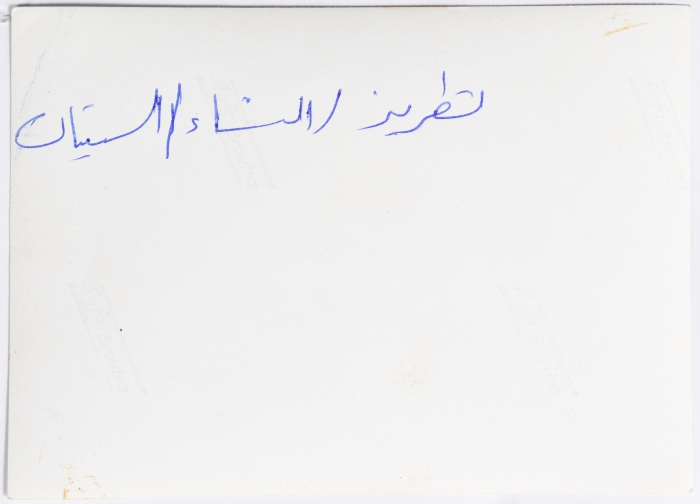 تطريز / النساء / الستينات